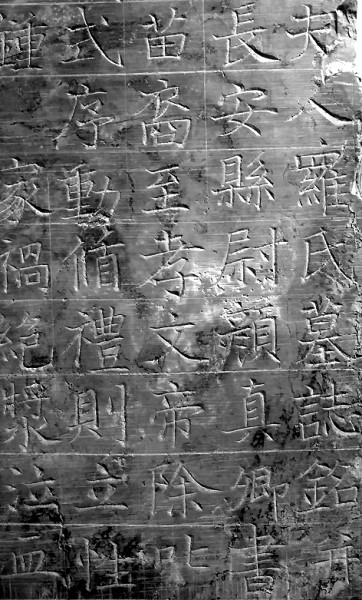 夫人羅氏墓誌銘并
長安縣尉顏真卿書
苗裔至孝文帝除吐
式序動循禮則立性
鍾家禍絕漿泣血